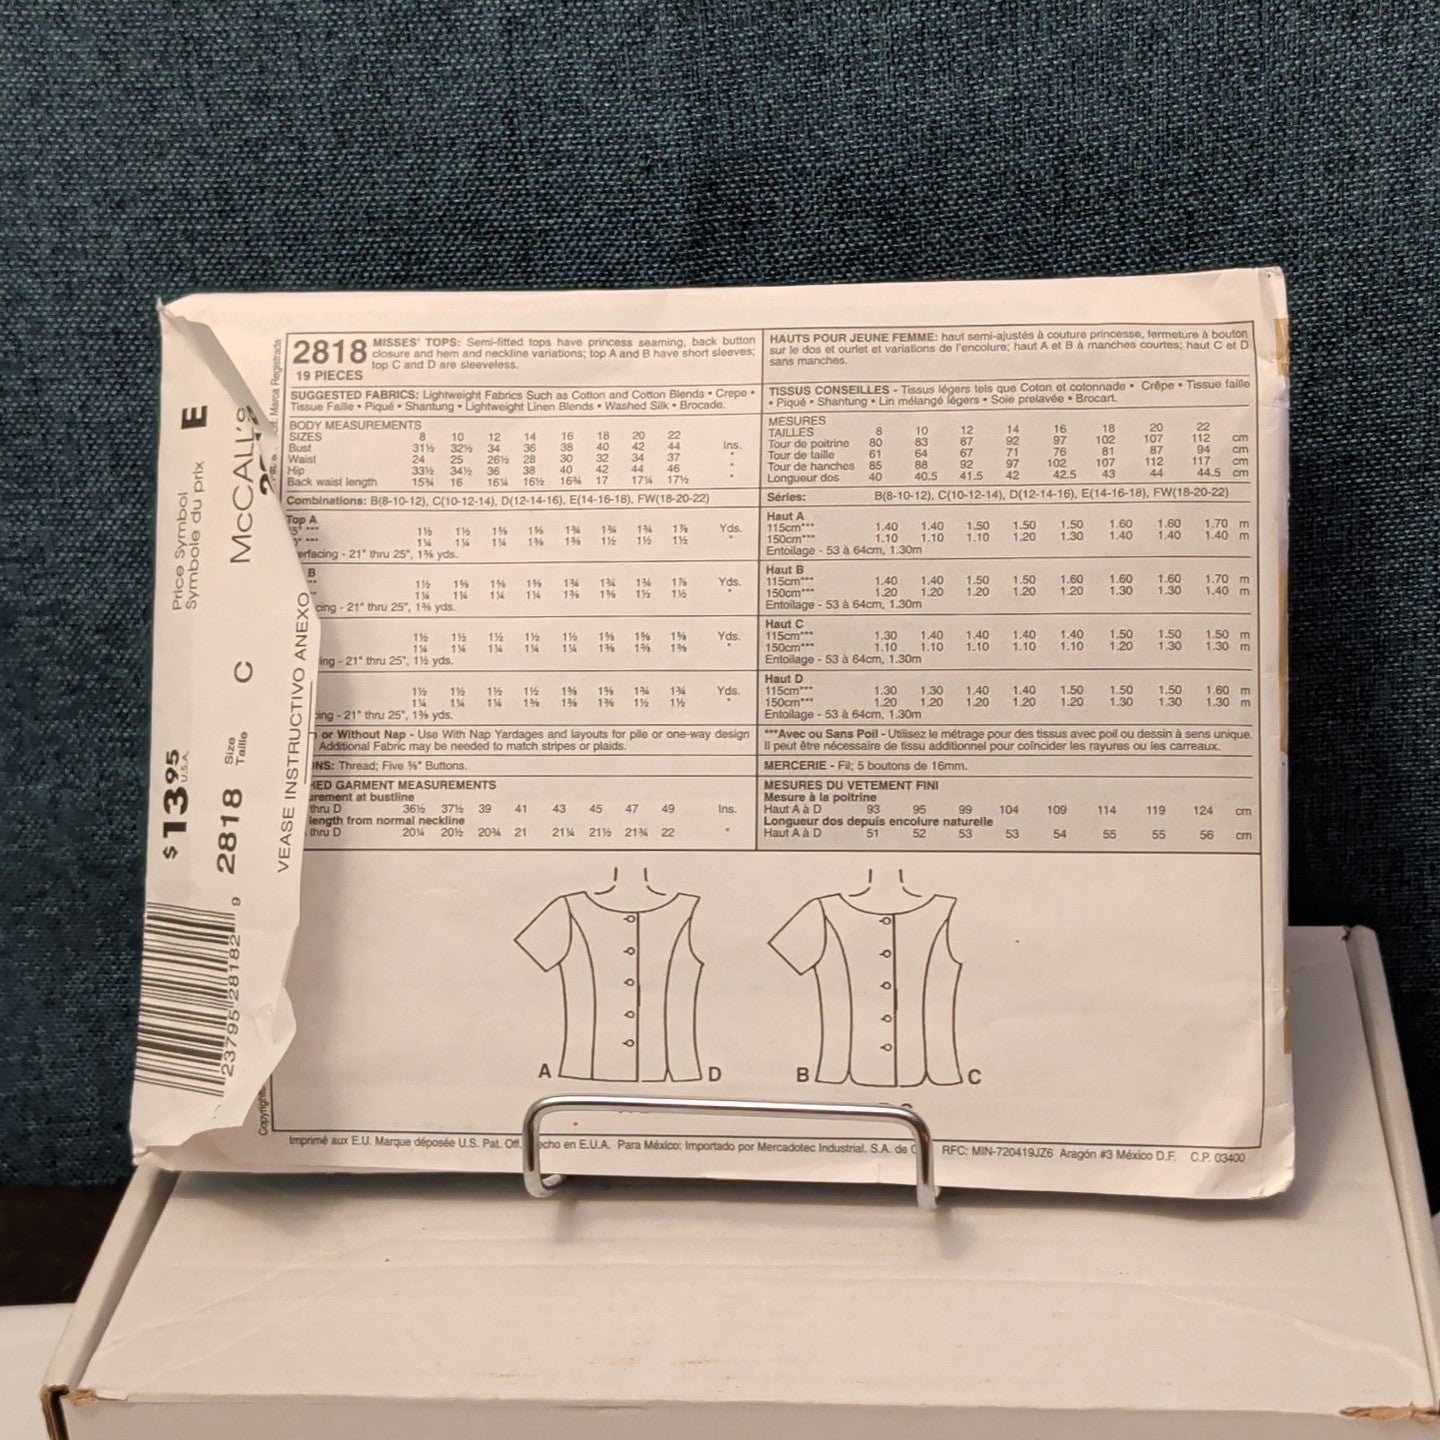 Price Symbol
Symbole du prix
E
$1395
U.S.A.
McCALL'S
2818
Size
Taille
C
VEASE INSTRUCTIVO ANEXO
23795 28182 9
Marca Registrada
2818
19 PIECES
MISSES' TOPS: Semi-fitted tops have princess seaming, back button
closure and hem and neckline variations; top A and B have short sleeves;
top C and D are sleeveless.
SUGGESTED FABRICS: Lightweight Fabrics Such as Cotton and Cotton Blends • Crepe •
Tissue Faille • Piqué • Shantung • Lightweight Linen Blends • Washed Silk • Brocade.
BODY MEASUREMENTS
SIZES 8 10 12 14 16 18 20 22
Bust 31½ 32½ 34 36 38 40 42 44 Ins.
Waist 24 25 26½ 28 30 32 34 37 "
Hip 33½ 34½ 36 38 40 42 44 46 "
Back waist length 15¾ 16 16¼ 16½ 16¾ 17 17¼ 17½ "
Combinations: B(8-10-12), C(10-12-14), D(12-14-16), E(14-16-18), FW(18-20-22)
Top A
1½ 1½ 1⅝ 1⅝ 1¾ 1¾ 1¾ 1⅞ Yds.
1¼ 1¼ 1¼ 1⅜ 1⅜ 1½ 1½ 1½ "
erfacing - 21" thru 25", 1⅜ yds.
B
1½ 1⅝ 1⅝ 1⅝ 1¾ 1¾ 1¾ 1⅞ Yds.
1¼ 1¼ 1¼ 1¼ 1⅜ 1⅜ 1½ 1½ "
cing - 21" thru 25", 1⅜ yds.
1½ 1½ 1½ 1½ 1½ 1⅝ 1⅝ 1⅝ Yds.
1¼ 1¼ 1¼ 1¼ 1¼ 1⅜ 1⅜ 1⅜ "
ing - 21" thru 25", 1½ yds.
1½ 1½ 1½ 1½ 1⅝ 1⅝ 1¾ 1¾ Yds.
1¼ 1¼ 1¼ 1⅜ 1⅜ 1⅜ 1½ 1½ "
cing - 21" thru 25", 1⅜ yds.
or Without Nap - Use With Nap Yardages and layouts for pile or one-way design
Additional Fabric may be needed to match stripes or plaids.
NS: Thread; Five ⅝" Buttons.
HED GARMENT MEASUREMENTS
urement at bustline
thru D 36½ 37½ 39 41 43 45 47 49 Ins.
length from normal neckline
thru D 20¼ 20½ 20¾ 21 21¼ 21½ 21¾ 22 "
HAUTS POUR JEUNE FEMME: haut semi-ajustés à couture princesse, fermeture à bouton
sur le dos et ourlet et variations de l'encolure; haut A et B à manches courtes; haut C et D
sans manches.
TISSUS CONSEILLES - Tissus légers tels que Coton et cotonnade • Crêpe • Tissue faille
• Piqué • Shantung • Lin mélangé légers • Soie prelavée • Brocart.
MESURES
TAILLES 8 10 12 14 16 18 20 22
Tour de poitrine 80 83 87 92 97 102 107 112 cm
Tour de taille 61 64 67 71 76 81 87 94 cm
Tour de hanches 85 88 92 97 102 107 112 117 cm
Longueur dos 40 40.5 41.5 42 42.5 43 44 44.5 cm
Séries: B(8-10-12), C(10-12-14), D(12-14-16), E(14-16-18), FW(18-20-22)
Haut A
115cm*** 1.40 1.40 1.50 1.50 1.50 1.60 1.60 1.70 m
150cm*** 1.10 1.10 1.10 1.20 1.30 1.40 1.40 1.40 m
Entoilage - 53 à 64cm, 1.30m
Haut B
115cm*** 1.40 1.40 1.50 1.50 1.60 1.60 1.60 1.70 m
150cm*** 1.20 1.20 1.20 1.20 1.20 1.30 1.30 1.40 m
Entoilage - 53 à 64cm, 1.30m
Haut C
115cm*** 1.30 1.40 1.40 1.40 1.40 1.50 1.50 1.50 m
150cm*** 1.10 1.10 1.10 1.10 1.10 1.20 1.30 1.30 m
Entoilage - 53 à 64cm, 1.30m
Haut D
115cm*** 1.30 1.30 1.40 1.40 1.50 1.50 1.50 1.60 m
150cm*** 1.20 1.20 1.20 1.20 1.20 1.30 1.30 1.30 m
Entoilage - 53 à 64cm, 1.30m
***Avec ou Sans Poil - Utilisez le métrage pour des tissus avec poil ou dessin à sens unique.
Il peut être nécessaire de tissu additionnel pour coïncider les rayures ou les carreaux.
MERCERIE - Fil; 5 boutons de 16mm.
MESURES DU VETEMENT FINI
Mesure à la poitrine
Haut A à D 93 95 99 104 109 114 119 124 cm
Longueur dos depuis encolure naturelle
Haut A à D 51 52 53 53 54 55 55 56 cm
A D B C
Copyright
Imprimé aux E.U. Marque déposée U.S. Pat. Off. echo en E.U.A. Para México: Importado por Mercadotec Industrial. S.A. de C RFC: MIN-720419JZ6 Aragón #3 México D.F. C.P. 03400